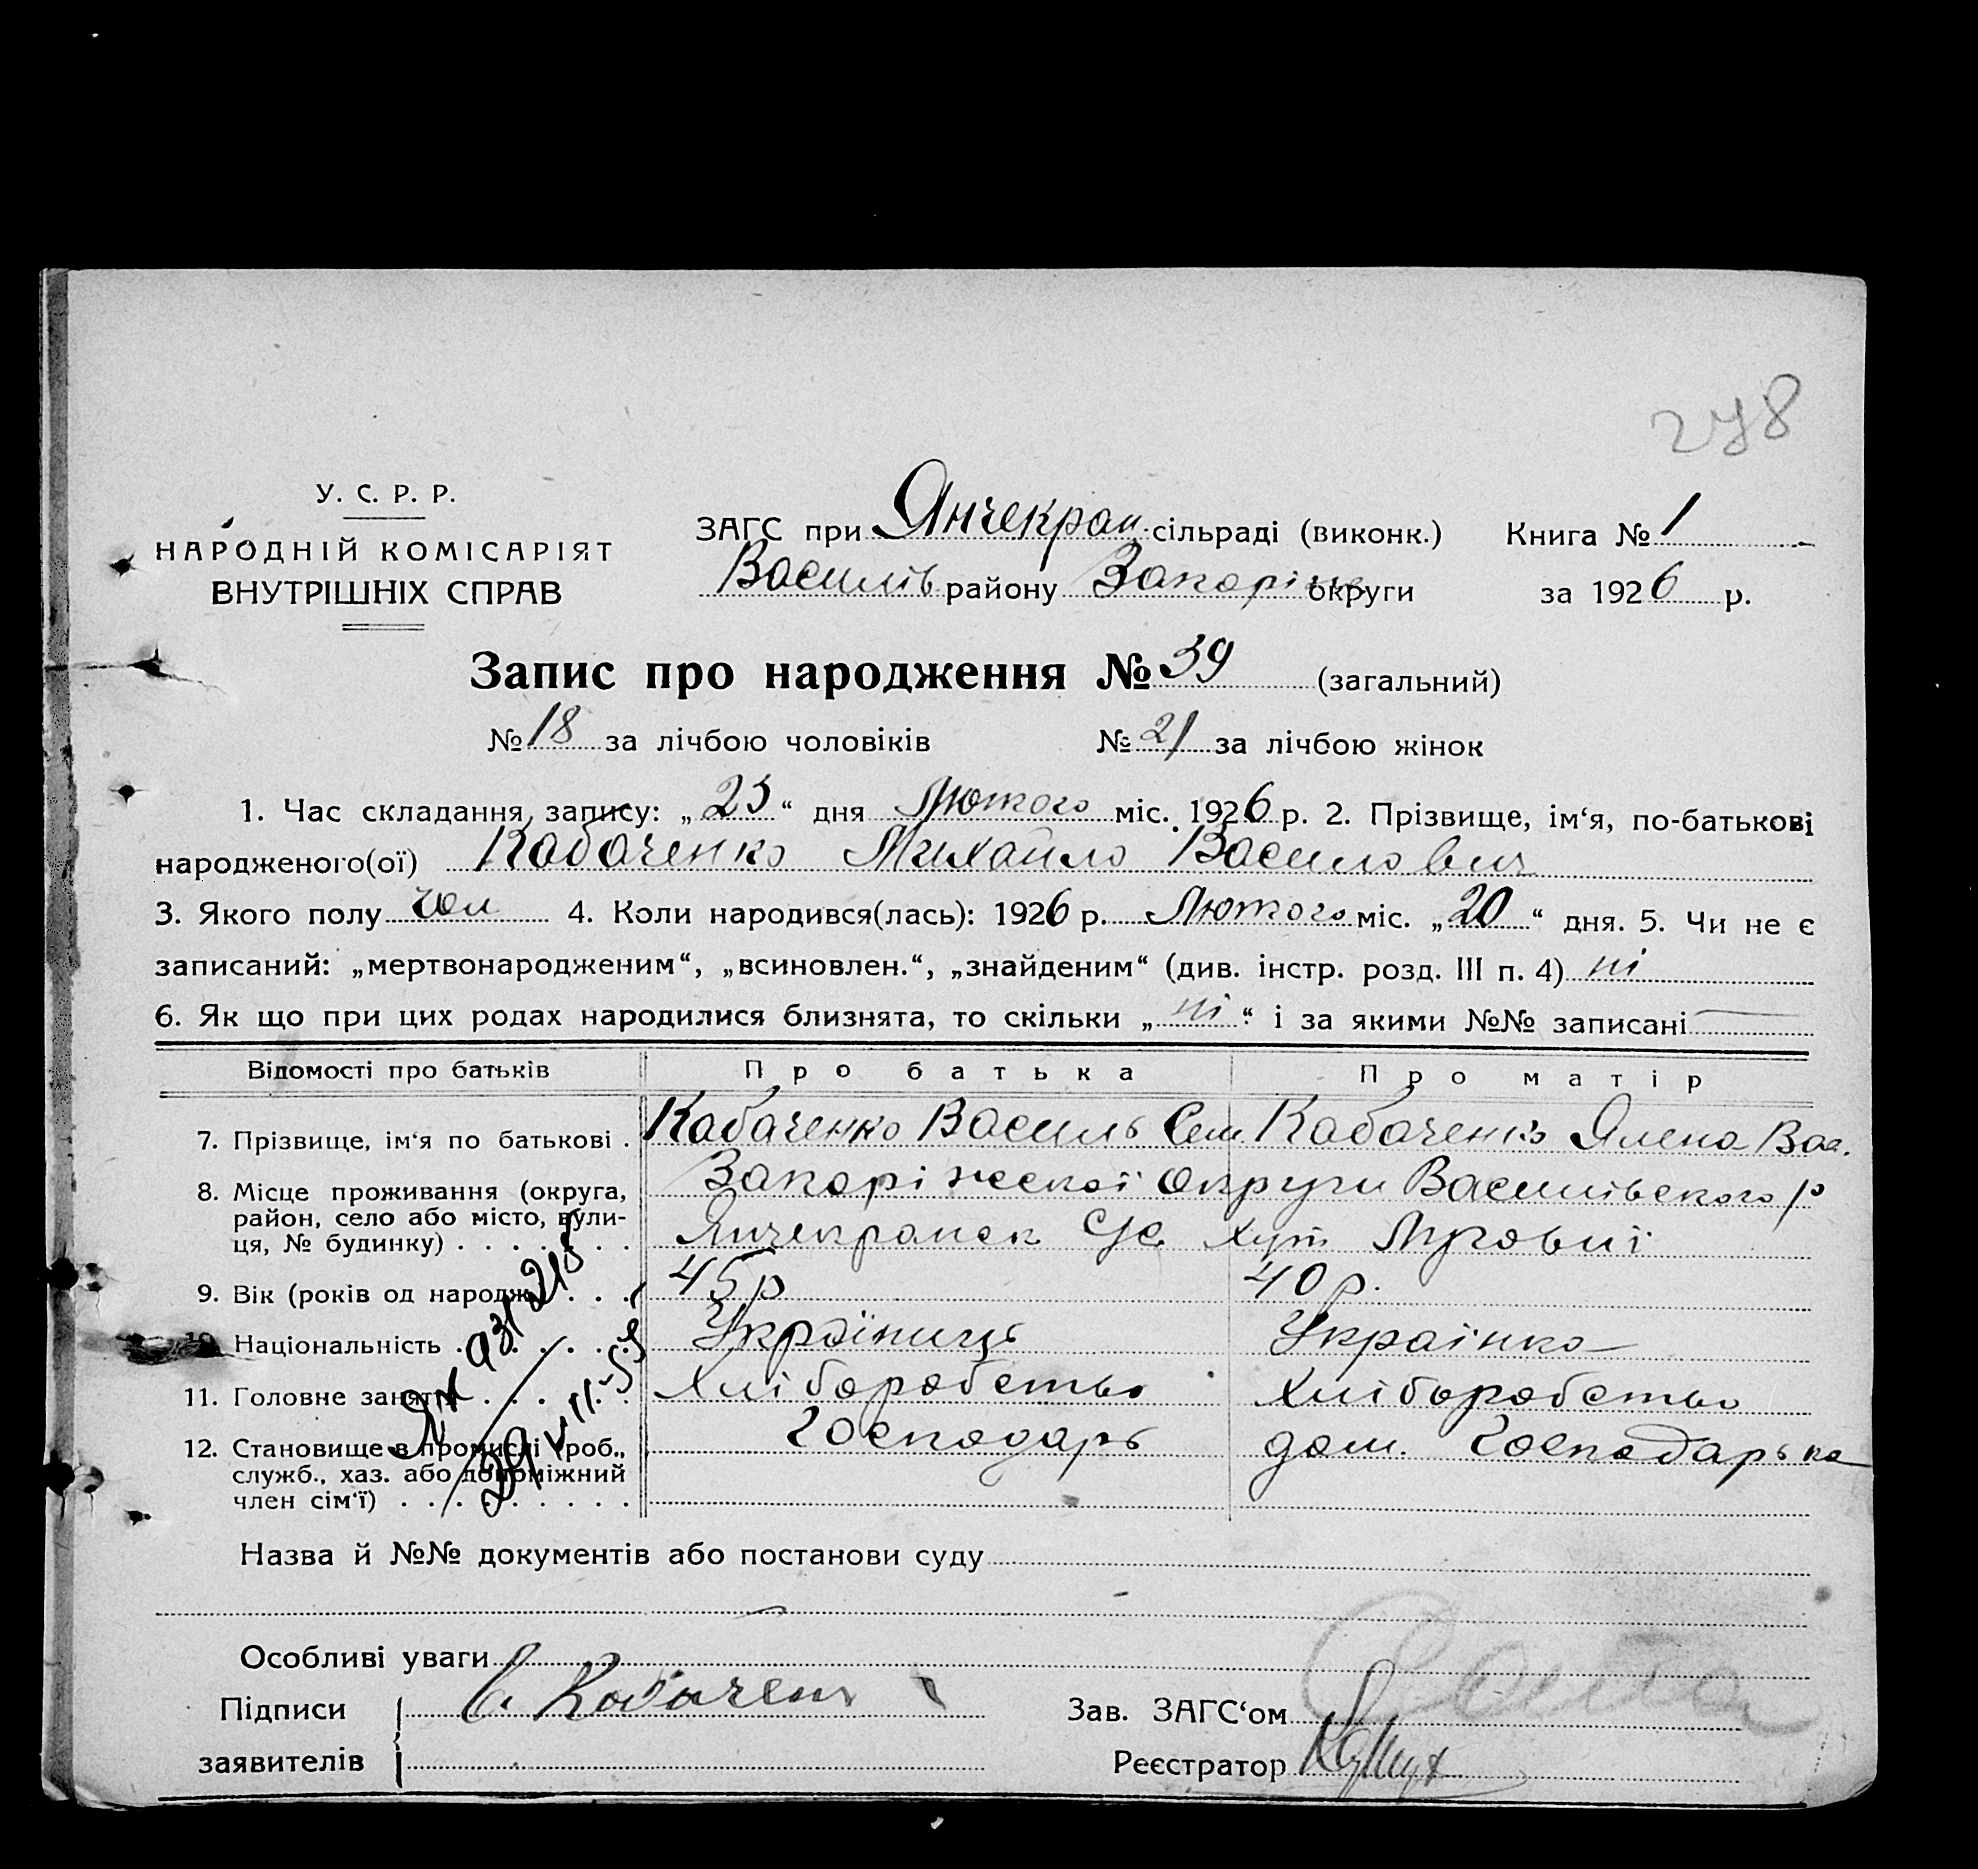 278
У. С. Р. Р.
НАРОДНІЙ КОМІСАРІЯТ
ВНУТРІШНІХ СПРАВ
ЗАГС при Янчекрак сільраді (виконк.) Книга № 1
Василів району Запоріж округи за 1926 р.
Запис про народження № 39 (загальний)
№ 18 за лічбою чоловіків № 21 за лічбою жінок
1. Час складання запису: „23“ дня Лютого міс. 1926 р. 2. Прізвище, ім‘я, по-батькові
народженого(ої) Кабаченко Михайло Василович
3. Якого полу чол 4. Коли народився(лась): 1926 р. Лютого міс. „20“ дня. 5. Чи не є
записаний: „мертвонародженим“, „всиновлен.“, „знайденим“ (див. інстр. розд. III п. 4) ні
6. Як що при цих родах народилися близнята, то скільки „ні“ і за якими №№ записані —
Відомості про батьків Про батька Про матір
7. Прізвище, ім‘я по батькові . Кабаченко Василь Сем Кабаченко Ялена Вас.
8. Місце проживання (округа, район, село або місто, вулиця, № будинку) Запоріжської округи Василівського р
Янчекракск С/С хут
9. Вік (років од народж. 45 р 40 р.
10. Національність Україниць Українка
11. Головне заняття Хліборобство Хліборобство
12. Становище в промислі (роб., Господарь дом. Господарька
служб., хаз. або допоміжний
член сім‘ї)
Назва й №№ документів або постанови суду
Особливі уваги
Підписи В. Кабачен Зав. ЗАГС‘ом
заявителів Реєстратор